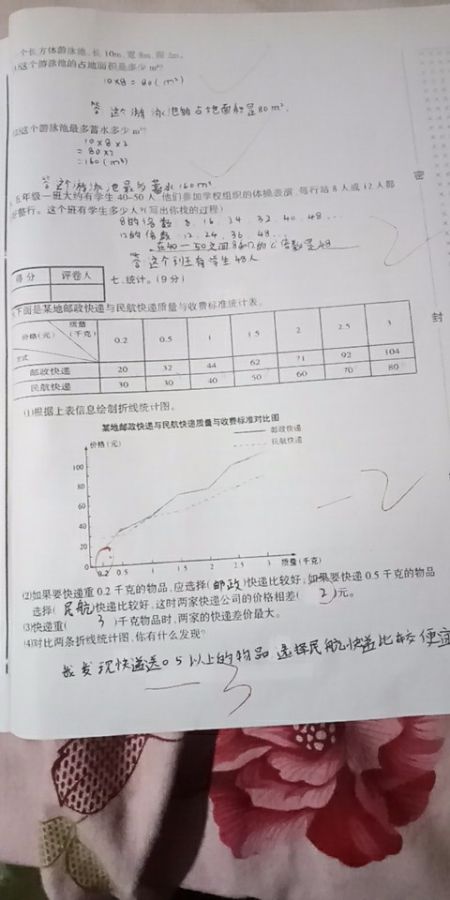 个长方体游泳池,长10m,宽8m,深2m。
这个游泳池的占地面积是多少 m²?
10×8=80(m²)
答:这个游泳池的占地面积是80m²。
这个游泳池最多蓄水多少 m³?
10×8×2
=80×2
=160(m³)
答:这个游泳池最多蓄水160m³
五年级一班大约有学生40~50人,他们参加学校组织的体操表演,每行站8人或12人都
整行。这个班有学生多少人?(写出你找的过程)
8的倍数:8、16、24、32、40、48……
12的倍数:12、24、36、48……
在40—50之间8和12的公倍数是48
答:这个班有学生48人
得分 评卷人
七、统计。(9分)
下面是某地邮政快递与民航快递质量与收费标准统计表。
价格(元) 质量(千克) 方式 0.2 0.5 1 1.5 2 2.5 3
邮政快递 20 32 44 62 71 92 104
民航快递 30 30 40 50 60 70 80
(1)根据上表信息绘制折线统计图。
某地邮政快递与民航快递质量与收费标准对比图
邮政快递
民航快递
价格(元)
100
80
60
40
20
0 0.2 0.5 1 1.5 2 2.5 3 质量(千克)
(2)如果要快递重0.2千克的物品,应选择(邮政)快递比较好,如果要快递0.5千克的物品
选择(民航)快递比较好,这时两家快递公司的价格相差(2)元。
(3)快递重(3)千克物品时,两家的快递差价最大。
(4)对比两条折线统计图,你有什么发现?
我发现快递送0.5以上的物品选择民航快递比较便宜
-2
-2
-3
密
封